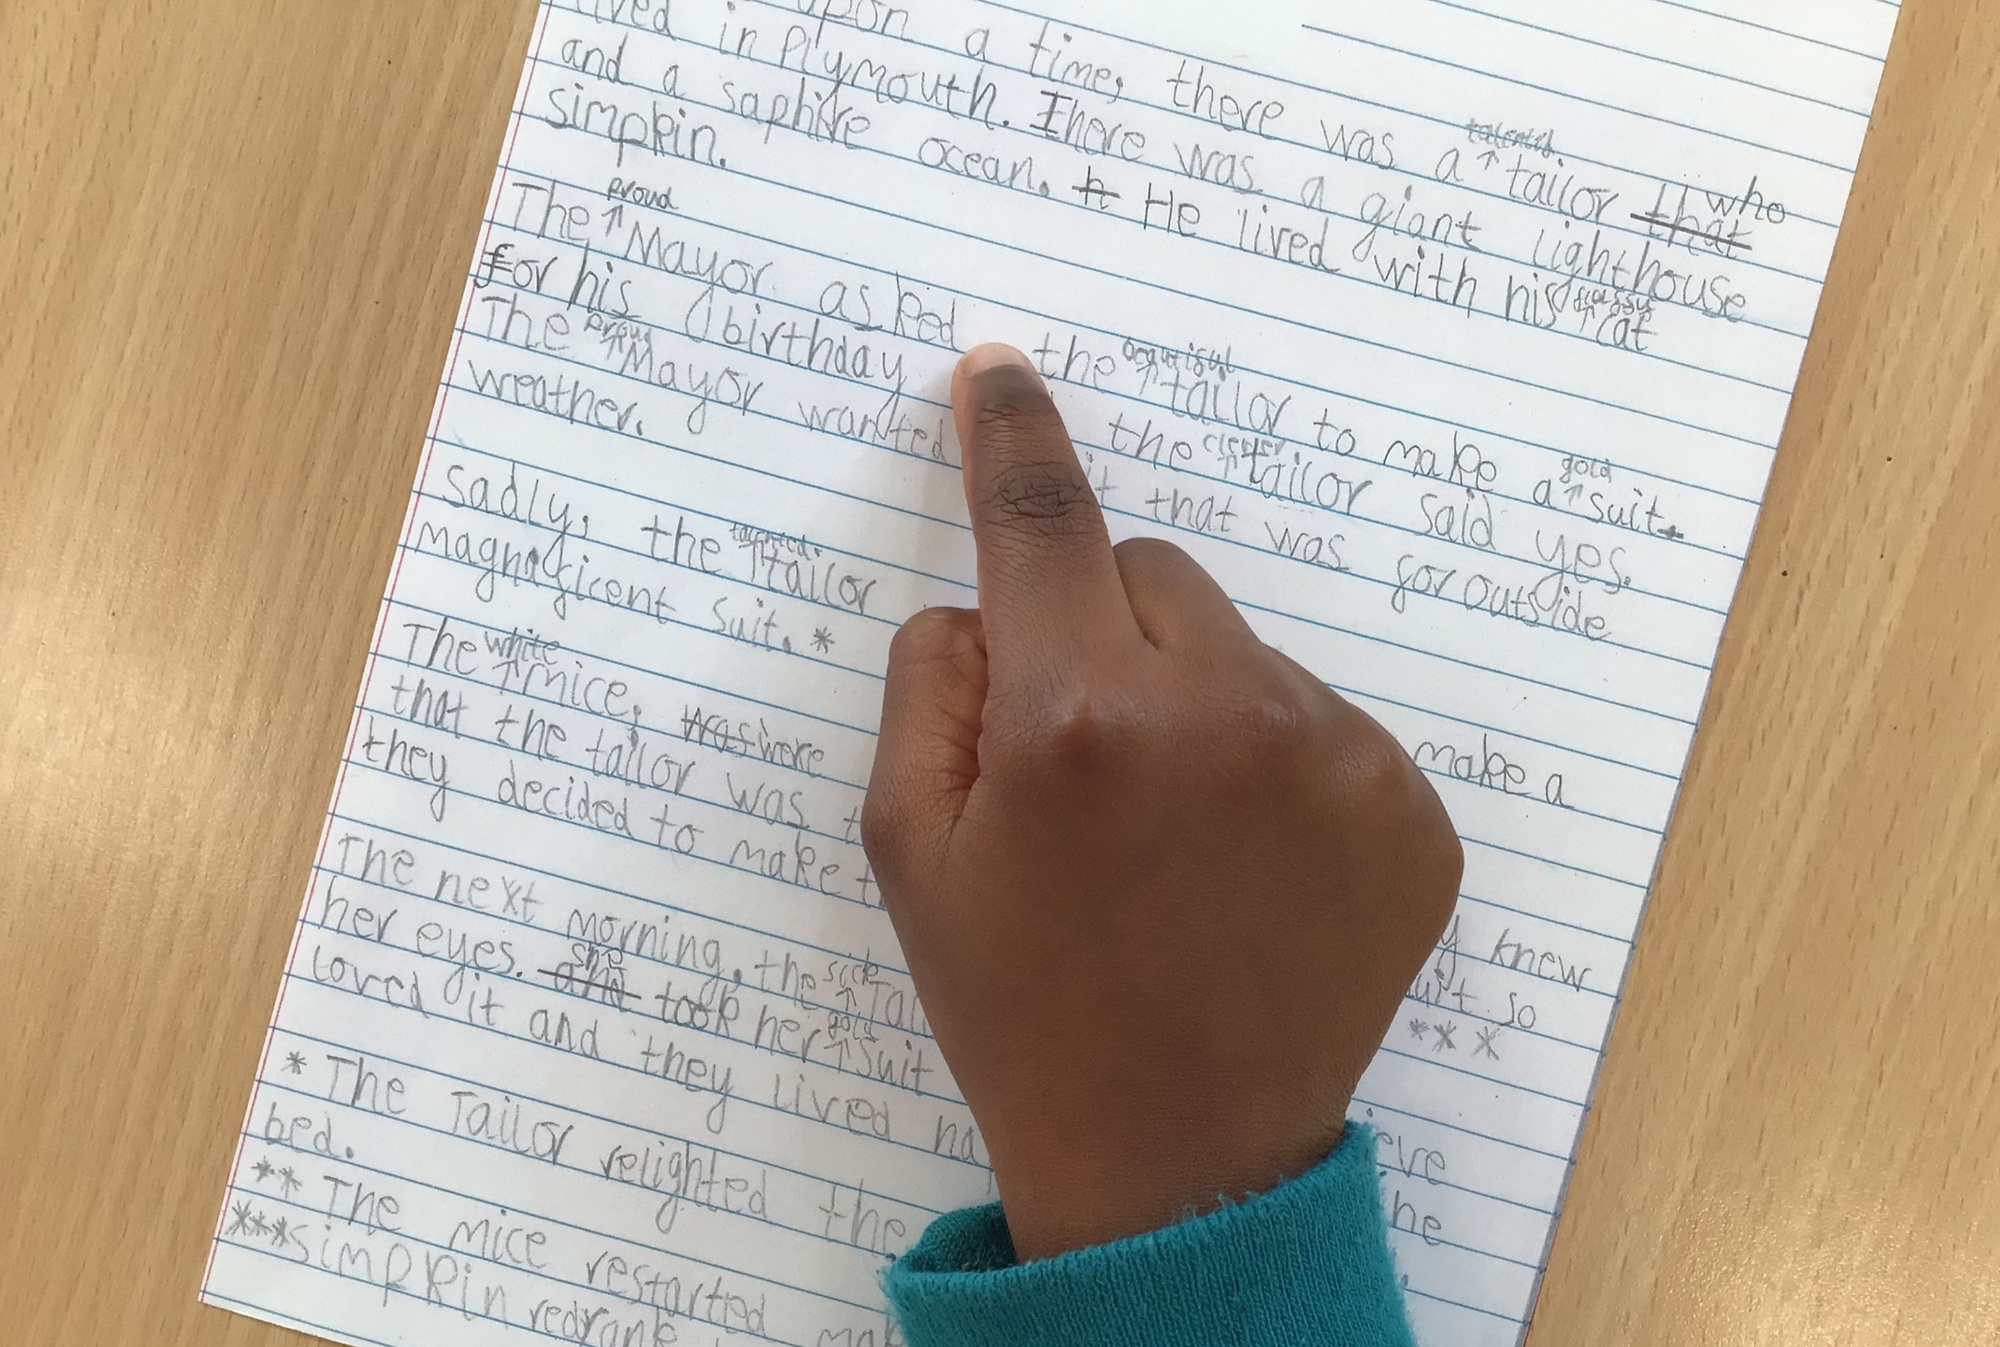 upon a time, there was a talented. tailor that who
lived in Plymouth. There was a giant lighthouse
and a saphire ocean. h He lived with his classy cat
simpkin.
The proud Mayor asked the beautiful tailor to make a gold suit.
for his birthday the clever tailor said yes.
The proud Mayor wanted it that was for outside
weather.
Sadly, the talented. tailor make a
magnificent suit. *
The white mice, was were y knew
that the tailor was suit so
they decided to make ** *
The next morning, the sick
her eyes. and she took her gold suit
loved it and they lived
* The Tailor relighted the
bed.
** The mice restarted
*** simpkin redrank